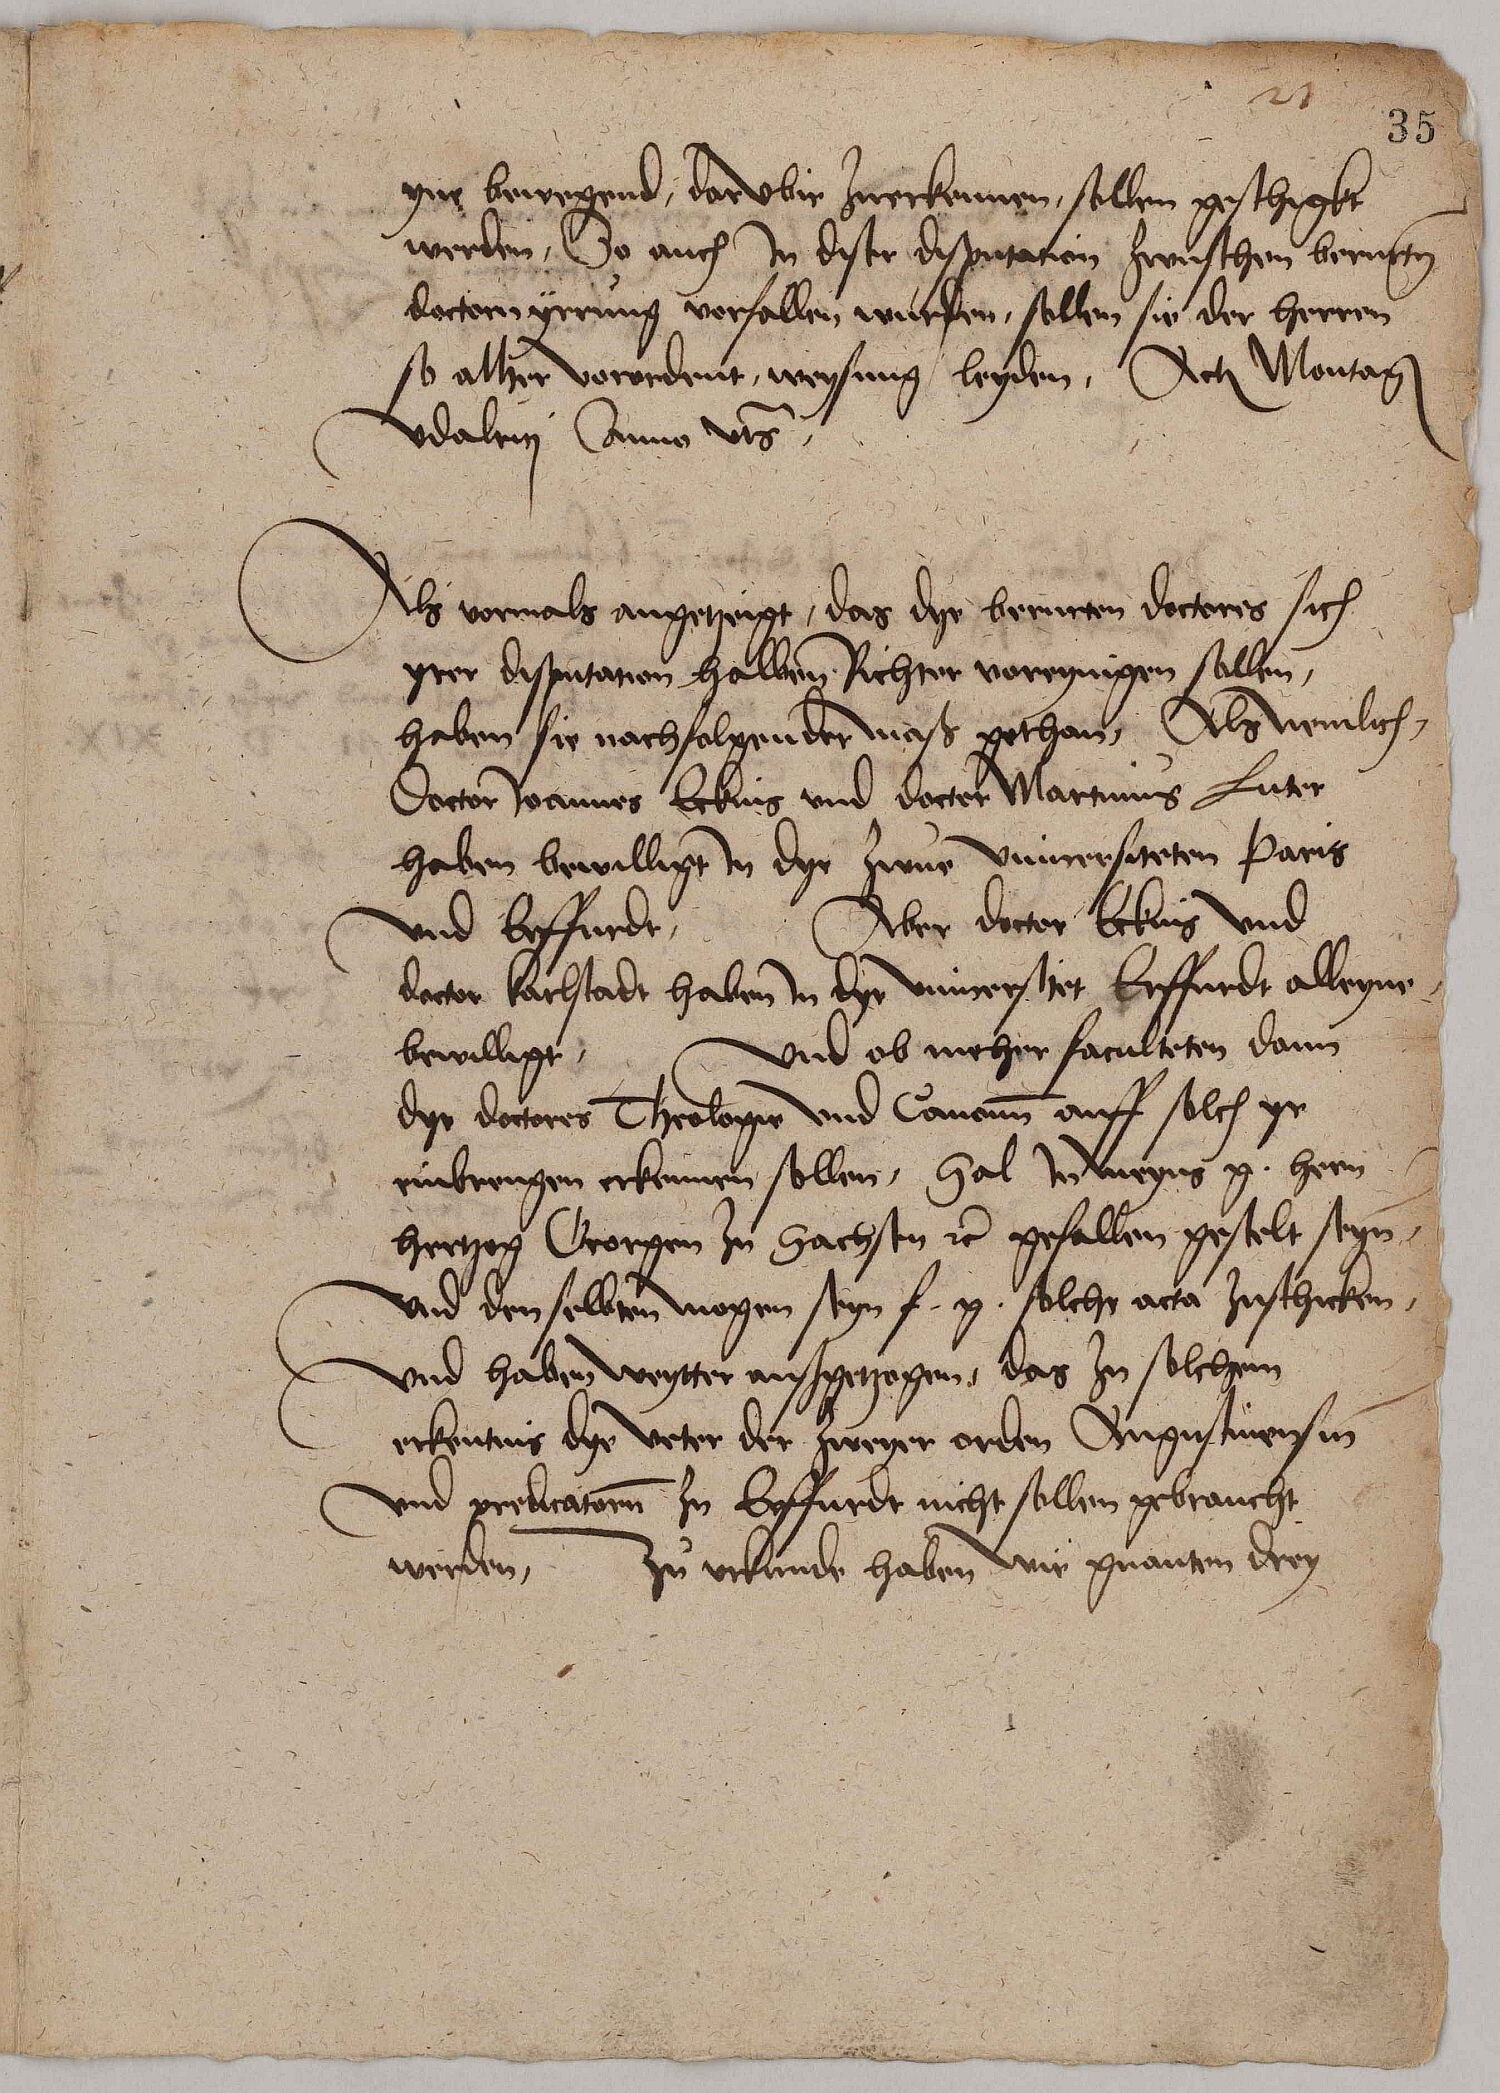 21
35
yne bewegend, darvbir zuerkennen, sollen geschigkt
werden, So auch In diser disputation zwuschen berurtn
doctorn yrrung vorfallen wurden, sollen sie der herren
so alher vorordent, weysung leyden, Act Montag
vdalrici Anno vts,
Als vormals angetzeigt, das dye berurten doctores sich
yrer disputation halben Richter voreynigen sollen,
haben sie nachfolgender mass gethan, Als nemlich,
Doctor Joannes Eckius vnd doctor Martinus Luter
haben bewilligt In dye zwue vniuersiteten Paris
vnd Erffurdt, Aber doctor Eckius vnd
doctor karlstadt haben In dye vniuersitet Erffurdt alleyne
bewilligt, vnd ob meher faculteten dann
dye doctores Theologie vnd Canonū auff solch yr
einbrengen erkennen sollen, Sal In meyns g. hern
hertzog Georgen zu Sachsen ꝛc gefallen gestelt seyn,
vnd den selbten mogen seyn f. g. solche acta zuschicken,
vnd haben weytter aussgetzogen, das zu solchem
erkentnis dye veter der zweyer orden Augustinensiū
vnd predicatorū zu Erffurdt nicht sollen gebraucht
werden, Zu vrkunde haben wir gnanten drey